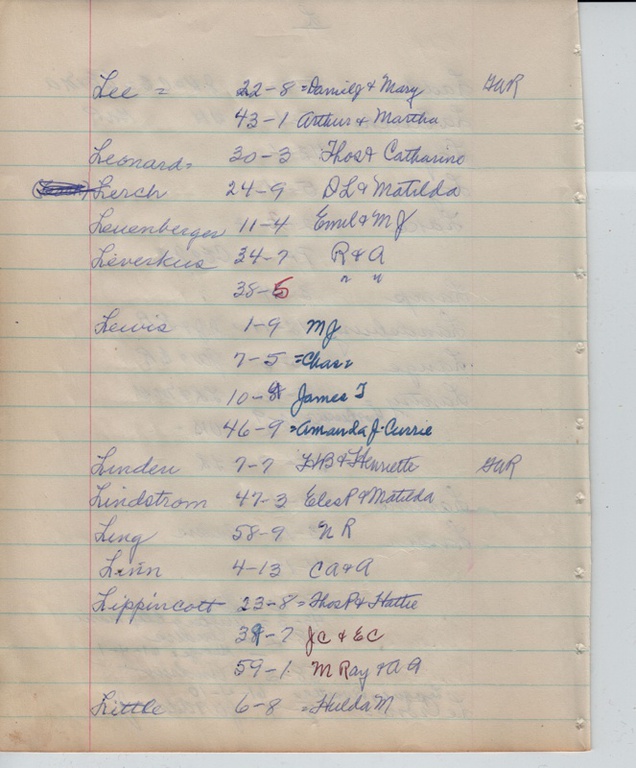 Lee = 22-8 = Daniel J & Mary GAR
43-1 Arthur & Martha
Leonard = 30-3 Thos & Catharine
Lerch 24-9 D L & Matilda
Leuenberger 11-4 Emil & M J
Leverkus 34-7 R & A
38-5 " "
Lewis 1-9 M J
7-5 = Chas =
10-8 James T
46-9 = Amanda J. Currie
Linden 7-7 & Henriette GAR
Lindstrom 47-3 & Matilda
Ling 58-9 N R
Linn 4-13 C A & A
Lippincott 23-8 = Thos P & Hattie
38-7 J C & E C
59-1 M Ray & A A
Little 6-8 = Hulda M